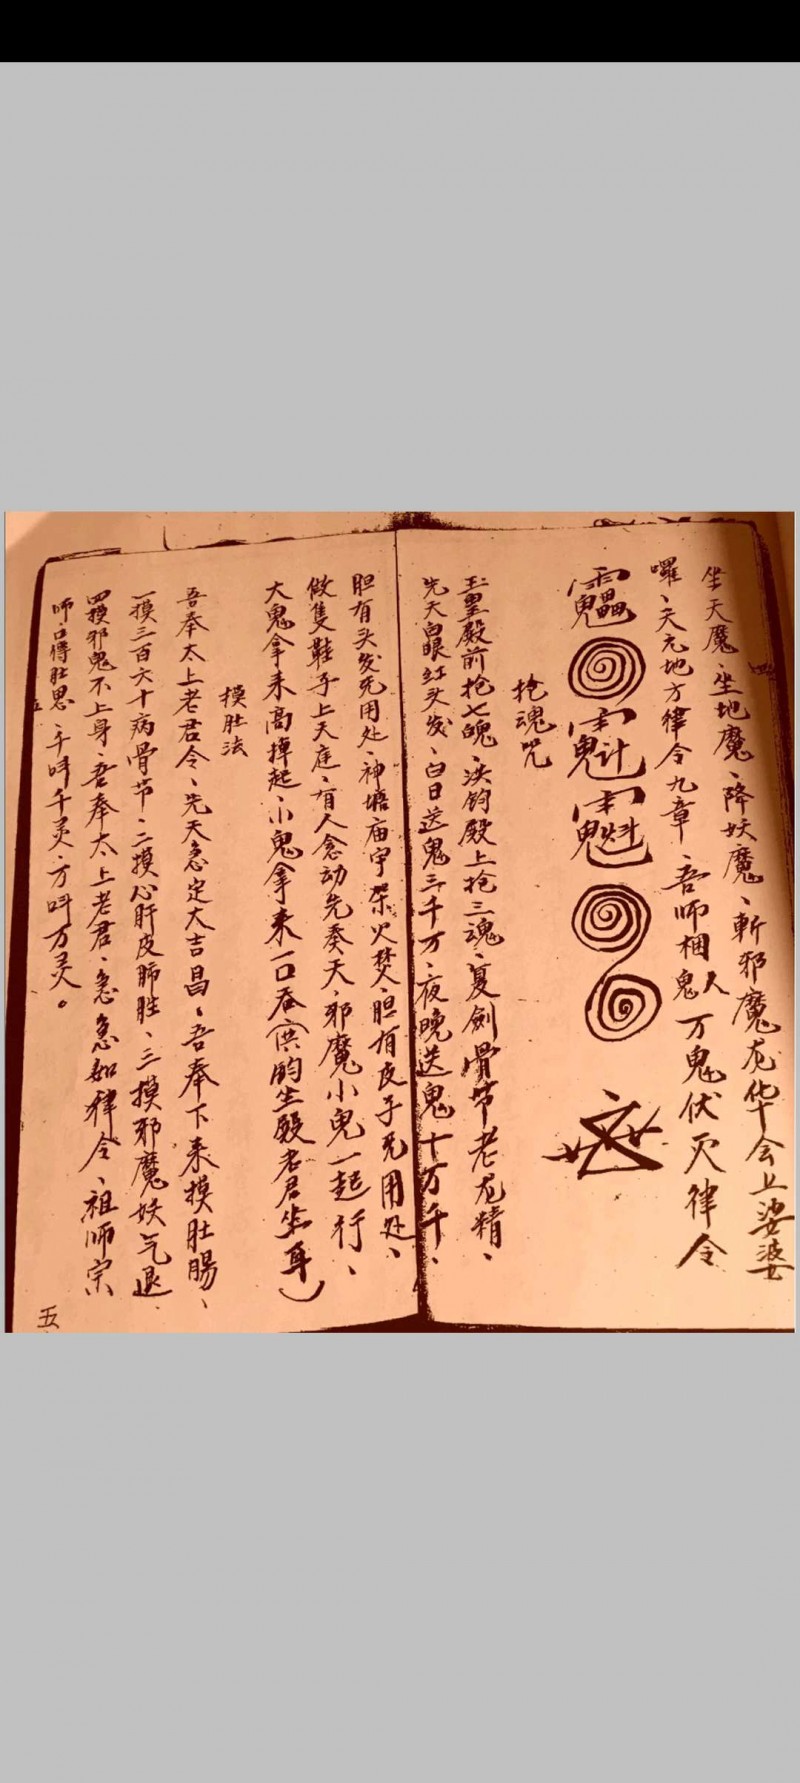 坐天魔、坐地魔、降妖魔、斬邪魔龙华会上娑婆
囉、天元地方律令九章、吾师捆鬼人万鬼伏灭律令
抢魂咒
玉皇殿前抢七魄、洪钧殿上抢三魂、夏劍骨节老龙精、
先天白眼红头发、白日送鬼三千万、夜晚送鬼十万千、
胆有头发无用处、神塘庙宇架火焚、胆有皮子无用处、
做隻鞋子上天庭、有人念动先奏天、邪魔小鬼一起行、
大鬼拿来高掉起、小鬼拿来一口吞（洪昀坐殿老君坐身）
摸肚法
吾奉太上老君令、先天急定大吉昌、吾奉下来摸肚腸、
一摸三百六十病骨节、二摸心肝皮肺胜、三摸邪魔妖气退、
四摸邪鬼不上身、吾奉太上老君、急急如律令、祖师宗
师口得肚思、千呌千灵、万呌万灵。
五